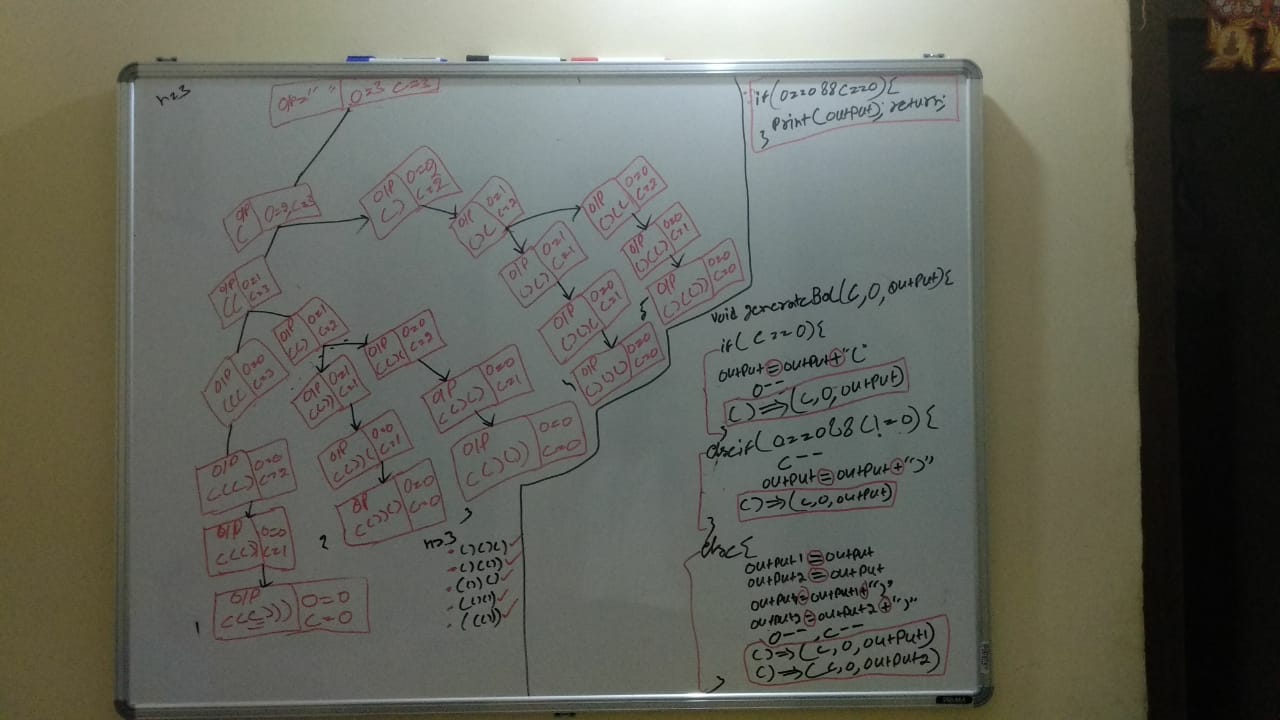 n=3
O/P=" " O=3 C=3
O/P ( O=2, C=3
O/P (( O=1 C=3
O/P ((( O=0 C=3
O/P ((() O=0 C=2
O/P ((()) O=0 C=1
1 O/P ((())) O=0 C=0
O/P (() O=1 C=2
O/P (()) O=1 C=1
O/P (())( O=0 C=1
2 O/P (())() O=0 C=0
O/P (()( O=0 C=2
O/P (()() O=0 C=1
O/P (()()) O=0 C=0
3
O/P () O=2 C=2
O/P ()( O=1 C=2
O/P ()() O=1 C=1
O/P ()()( O=0 C=1
4 O/P ()()() O=0 C=0
O/P ()(( O=0 C=2
O/P ()(() O=0 C=1
5 O/P ()(()) O=0 C=0
n=3
()()()
()(())
(())()
(()())
((()))
if(O==0 && C==0){
print(output); return;
}
void generateBal(C,O,output){
if(C==O){
output=output+"("
O--
()⇒(C,O,output)
}
elseif(O==0 && C!=0){
C--
output=output+")"
()⇒(C,O,output)
}
else{
output1=output
output2=output
output1=output1+")"
output2=output2+")"
O--, C--
()⇒(C,O,output1)
()⇒(C,O,output2)
}